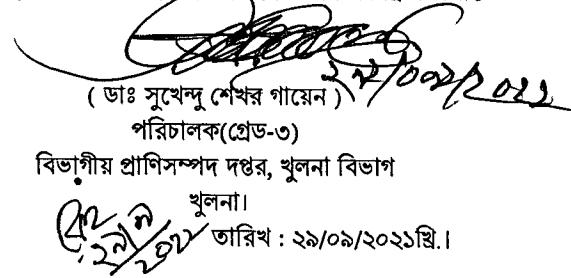 ২৯/০৯/২০২১
( ডাঃ সুখেন্দু শেখর গায়েন )
পরিচালক(গ্রেড-৩)
বিভাগীয় প্রাণিসম্পদ দপ্তর, খুলনা বিভাগ
খুলনা।
২৯/৯
তারিখ : ২৯/০৯/২০২১খ্রি.।